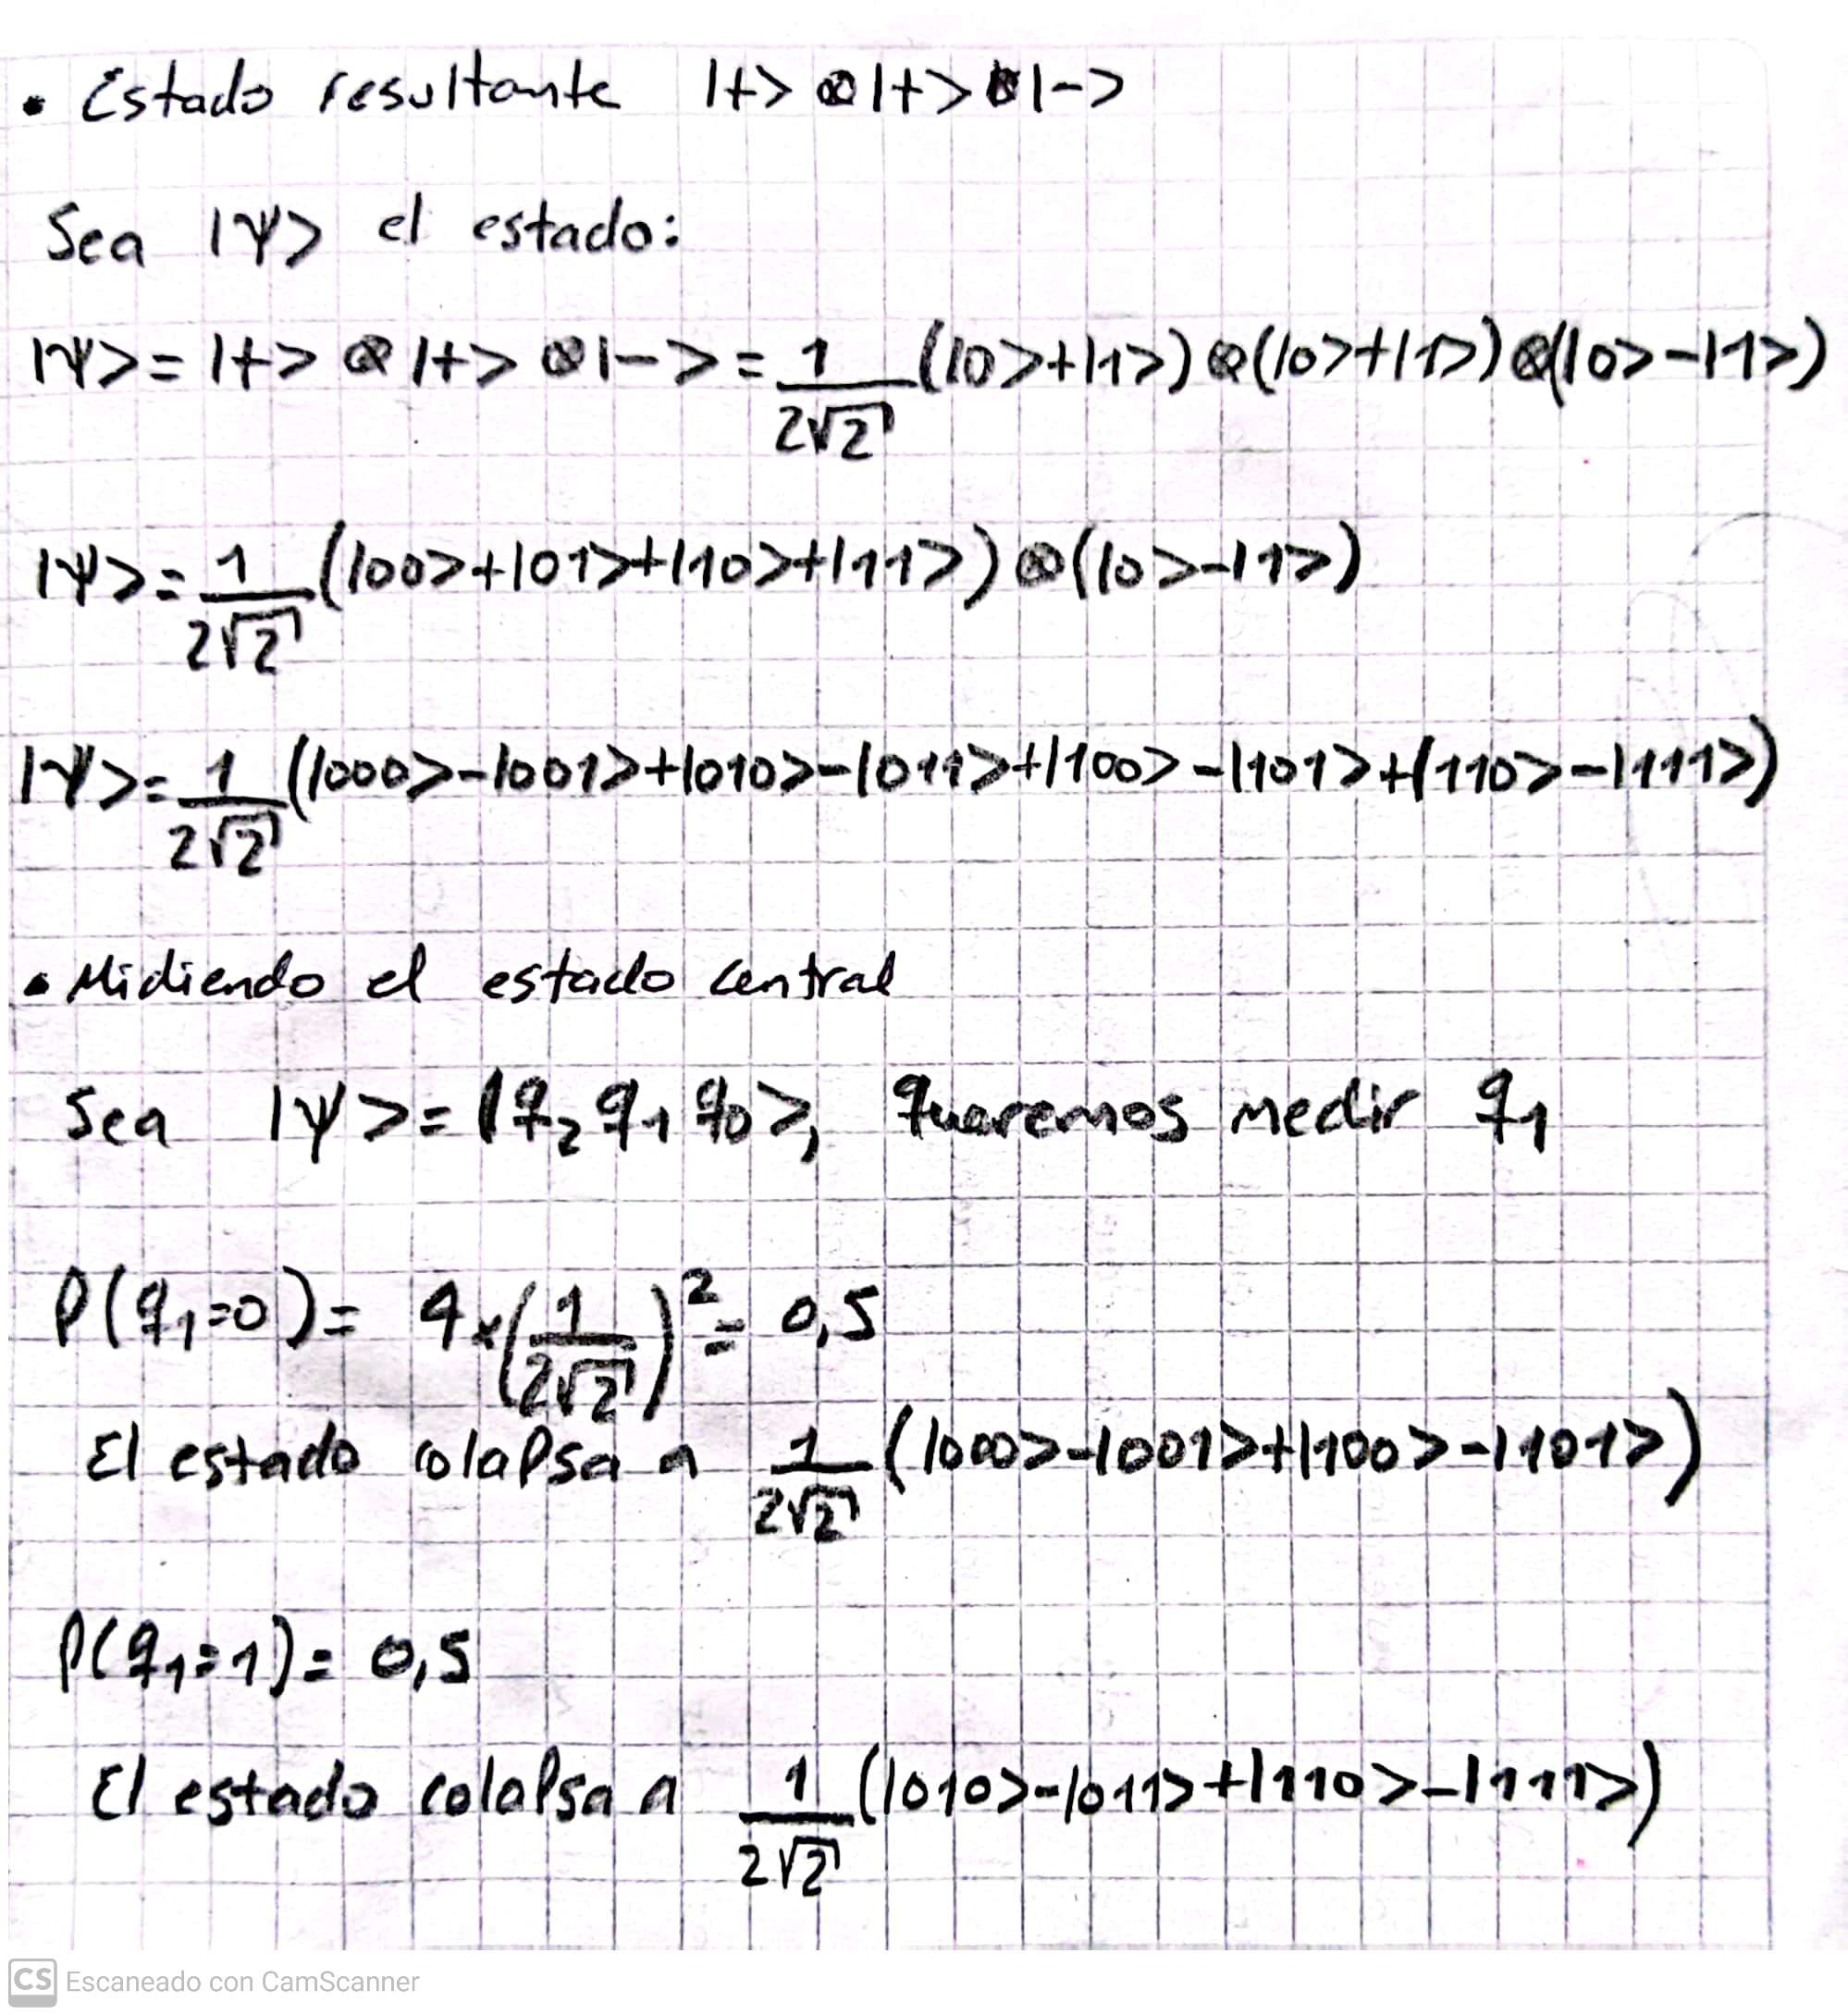 • Estado resultante |+> ⊗ |+> ⊗ |->
Sea |ψ> el estado:
|ψ> = |+> ⊗ |+> ⊗ |-> = 1/(2√2) (|0>+|1>) ⊗ (|0>+|1>) ⊗ (|0>-|1>)
|ψ> = 1/(2√2) (|00>+|01>+|10>+|11>) ⊗ (|0>-|1>)
|ψ> = 1/(2√2) (|000>-|001>+|010>-|011>+|100>-|101>+|110>-|111>)
• Midiendo el estado central
Sea |ψ> = |q₂ q₁ q₀>, queremos medir q₁
P(q₁=0) = 4 × (1/(2√2))² = 0,5
El estado colapsa a 1/(2√2) (|000>-|001>+|100>-|101>)
P(q₁=1) = 0,5
El estado colapsa a 1/(2√2) (|010>-|011>+|110>-|111>)
CS Escaneado con CamScanner